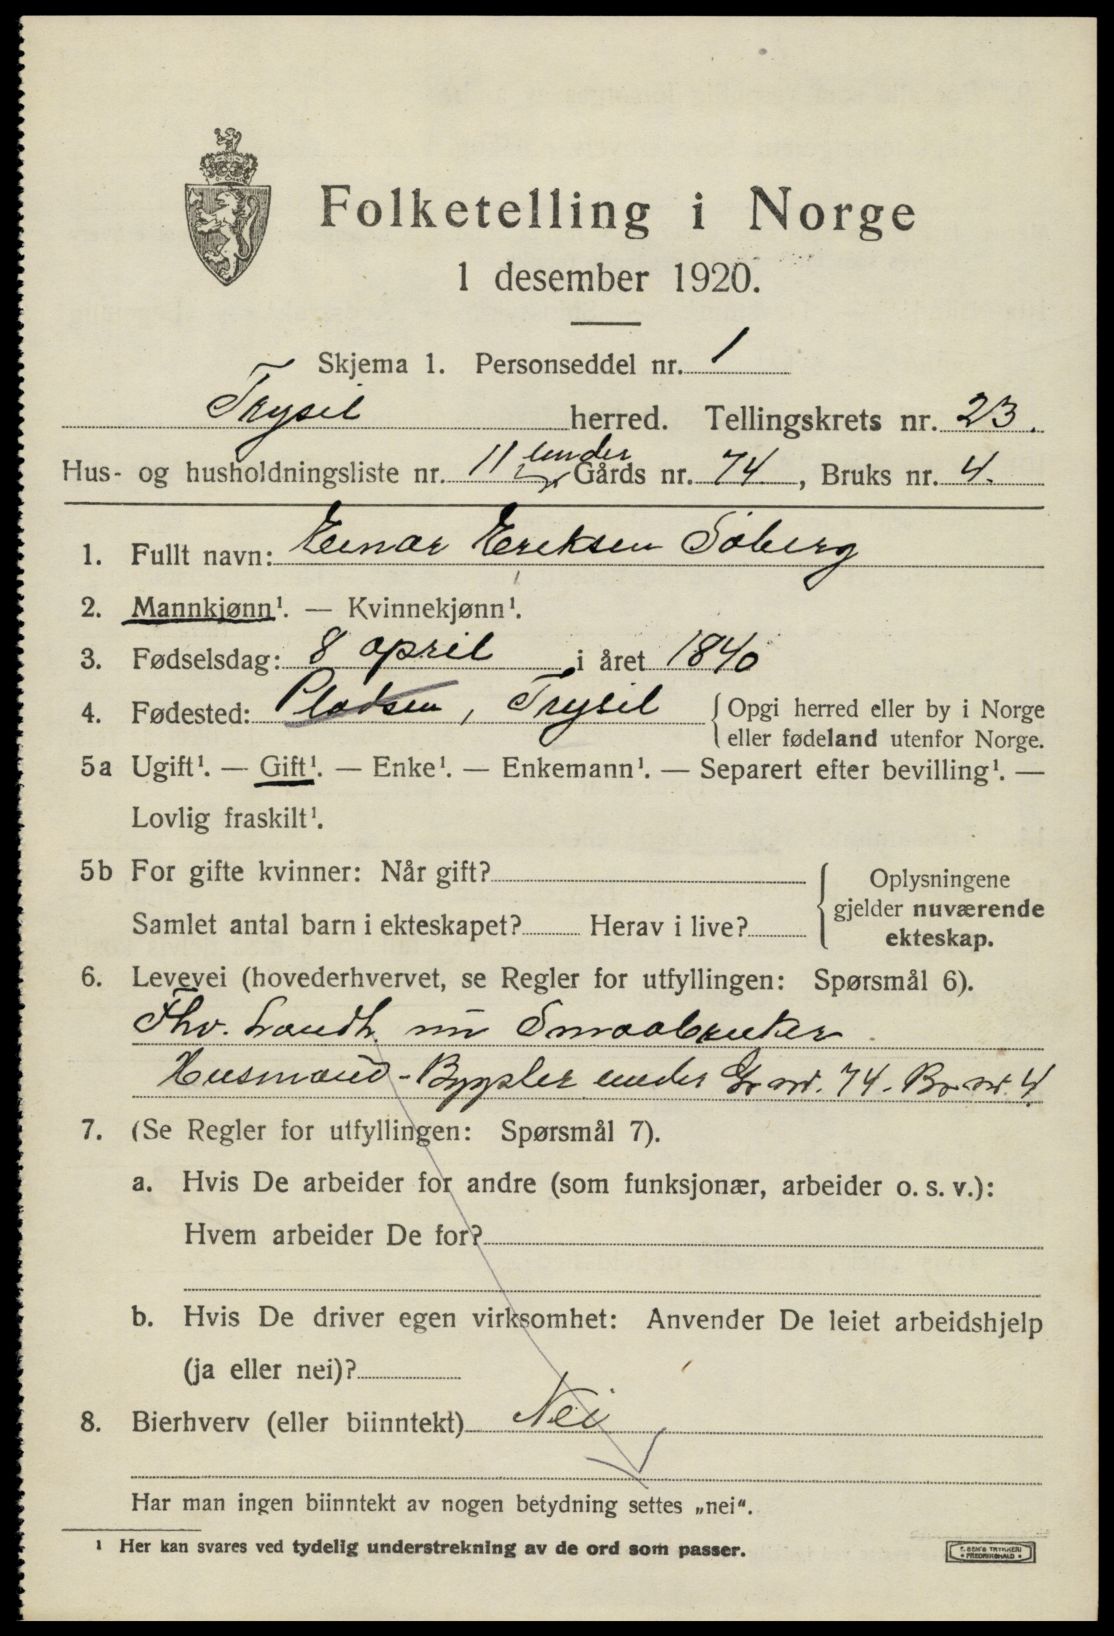 Folketelling i Norge
1 desember 1920.
Skjema 1. Personseddel nr. 1
Trysil herred. Tellingskrets nr. 23.
Hus- og husholdningsliste nr. 11 under Gårds nr. 74, Bruks nr. 4.
1. Fullt navn: Einar Eriksen Søberg
2. Mannkjønn¹. — Kvinnekjønn¹.
3. Fødselsdag: 8 april i året 1840
4. Fødested: Pladsen, Trysil {Opgi herred eller by i Norge
eller fødeland utenfor Norge.
5a Ugift¹. — Gift¹. — Enke¹. — Enkemann¹. — Separert efter bevilling¹. —
Lovlig fraskilt¹.
5b For gifte kvinner: Når gift?
Samlet antal barn i ekteskapet? Herav i live?
{Oplysningene
gjelder nuværende
ekteskap.
6. Levevei (hovederhvervet, se Regler for utfyllingen: Spørsmål 6).
Fhv. Landh. nu Smaabruker
Husmand-Bygsler under Gr nr. 74. Br nr. 4
7. (Se Regler for utfyllingen: Spørsmål 7).
a. Hvis De arbeider for andre (som funksjonær, arbeider o. s. v.):
Hvem arbeider De for?
b. Hvis De driver egen virksomhet: Anvender De leiet arbeidshjelp
(ja eller nei)?
8. Bierhverv (eller biinntekt) Nei
Har man ingen biinntekt av nogen betydning settes „nei“.
¹ Her kan svares ved tydelig understrekning av de ord som passer.